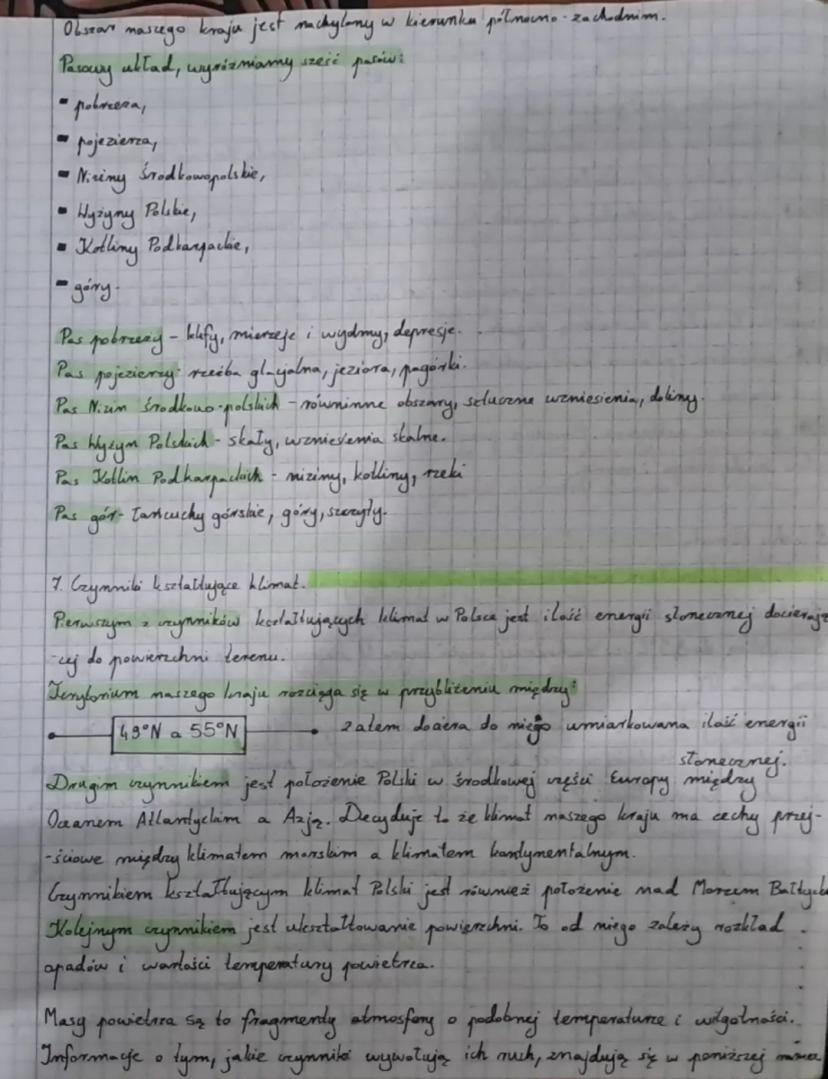 Obszar naszego kraju jest nachylony w kierunku północno-zachodnim.
Pasowy układ, wyróżniamy sześć pasów:
- pobrzeża,
- pojezierza,
- Niziny Środkowopolskie,
- Wyżyny Polskie,
- Kotliny Podkarpackie,
- góry.
Pas pobrzeży - klify, mierzeje i wydmy, depresje.
Pas pojezierzy: rzeźba glacjalna, jeziora, pagórki.
Pas Nizin środkowo-polskich - równinne obszary, sztuczne wzniesienia, doliny.
Pas Wyżyn Polskich - skały, wzniesienia skalne.
Pas Kotlin Podkarpackich - niziny, kotliny, rzeki
Pas gór - łańcuchy górskie, góry, szczyty.
7. Czynniki kształtujące klimat.
Pierwszym z czynników kształtujących klimat w Polsce jest ilość energii słonecznej docierają
-cej do powierzchni terenu.
Terytorium naszego kraju rozciąga się w przybliżeniu między:
49°N a 55°N zatem dociera do niego umiarkowana ilość energii
słonecznej.
Drugim czynnikiem jest położenie Polski w środkowej części Europy między
Oceanem Atlantyckim a Azją. Decyduje to że klimat naszego kraju ma cechy przej-
-ściowe między klimatem morskim a klimatem kontynentalnym.
Czynnikiem kształtującym klimat Polski jest również położenie nad Morzem Bałtyck
Kolejnym czynnikiem jest ukształtowanie powierzchni. To od niego zależy rozkład
opadów i wartości temperatury powietrza.
Masy powietrza są to fragmenty atmosfery o podobnej temperaturze i wilgotności.
Informacje o tym, jakie czynniki wywołują ich ruch, znajdują się w poniższej